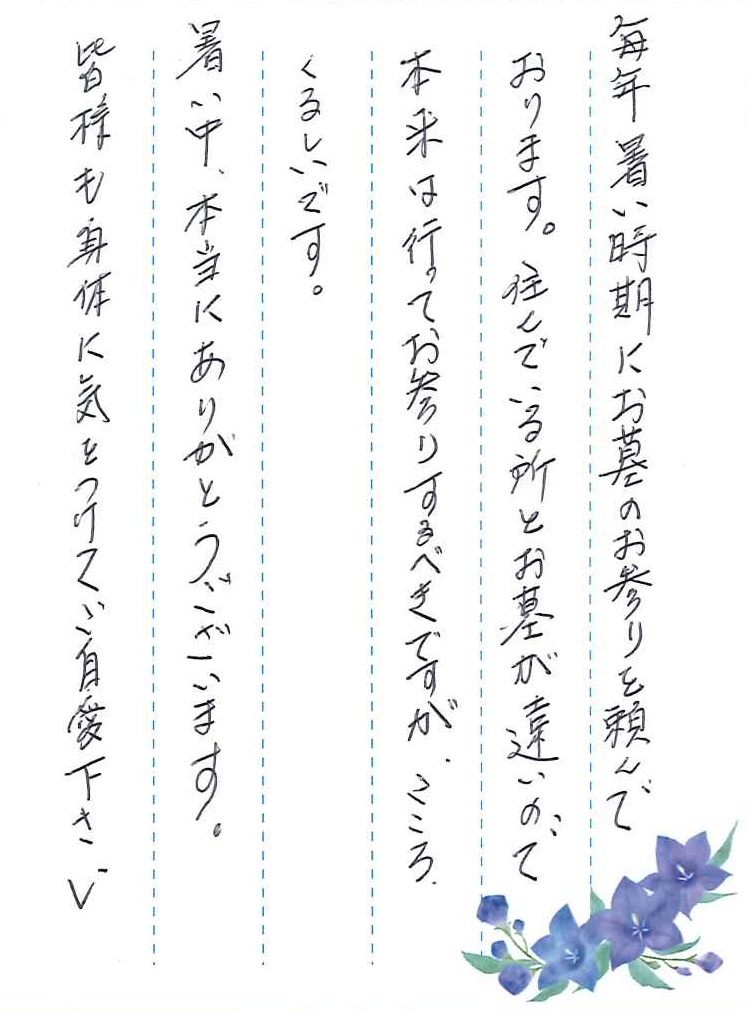 毎年暑い時期にお墓のお参りを頼んで
おります。住んでいる所とお墓が遠いので
本来は行ってお参りするべきですが、こころ
くるしいです。
暑い中、本当にありがとうございます。
皆様も身体に気をつけてご自愛下さい